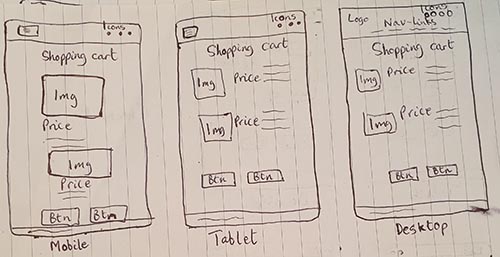 Icons
Shopping cart
Img
Price
Img
Price
Btn Btn
Mobile
Icons
Shopping cart
Img Price
Img Price
Btn Btn
Tablet
Icons
Logo Nav-Links
Shopping cart
Img Price
Img Price
Btn Btn
Desktop